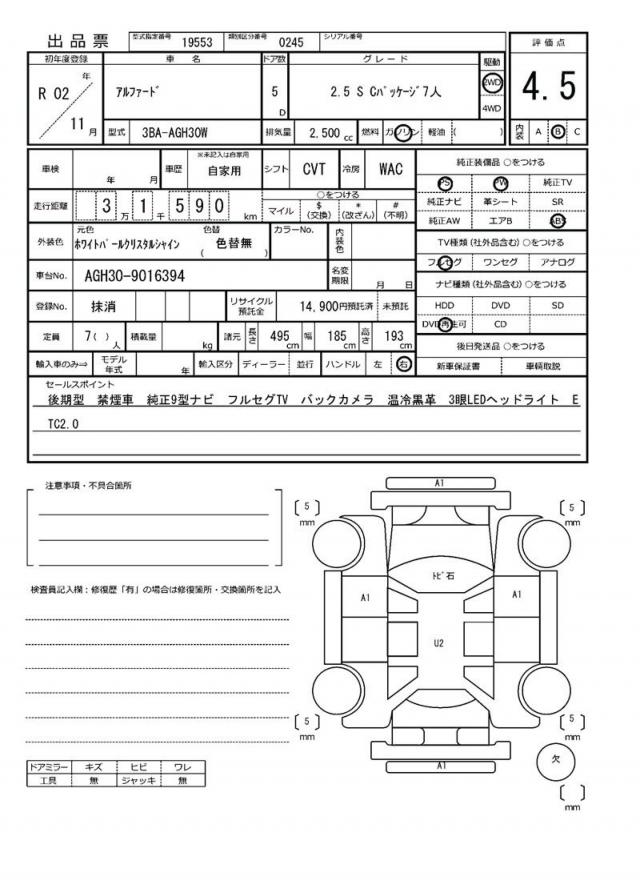 出品票
型式指定番号 19553 類別区分番号 0245 シリアル番号
初年度登録 車名 ドア数 グレード 駆動 評価点
R 02 年 11 月
アルファード 5 D 2.5 S Cパッケージ7人 2WD 4WD 4.5
型式 3BA-AGH30W 排気量 2,500 cc 燃料 ガソリン 軽油 ( ) 内装 A B C
車検 年 月 車歴 ※未記入は自家用 自家用 シフト CVT 冷房 WAC 純正装備品 ○をつける
PS PW 純正TV
走行距離 3 万 1 千 5 9 0 km ○をつける マイル $ (交換) * (改ざん) # (不明) 純正ナビ 革シート SR
純正AW エアB ABS
外装色 元色 ホワイトパールクリスタルシャイン 色替 ( 色替無 ) カラーNo. 内装色 TV種類 (社外品含む) ○をつける
フルセグ ワンセグ アナログ
車台No. AGH30-9016394 名変期限 月 日 ナビ種類 (社外品含む) ○をつける
登録No. 抹消 リサイクル預託金 14,900円預託済 未預託 HDD DVD SD
DVD再生可 CD
定員 7( )人 積載量 kg 諸元 長さ 495 cm 幅 185 cm 高さ 193 cm 後日発送品 ○をつける
輸入車のみ⇒ モデル年式 年 輸入区分 ディーラー 並行 ハンドル 左 右 新車保証書 車輌取説
セールスポイント
後期型 禁煙車 純正9型ナビ フルセグTV バックカメラ 温冷黒革 3眼LEDヘッドライト E
TC2.0
注意事項・不具合箇所
A1
5 mm 5 mm
トビ石
検査員記入欄:修復歴「有」の場合は修復箇所・交換箇所を記入
A1 A1
U2
5 mm 5 mm
A1
欠
mm
ドアミラー キズ ヒビ ワレ
工具 無 ジャッキ 無